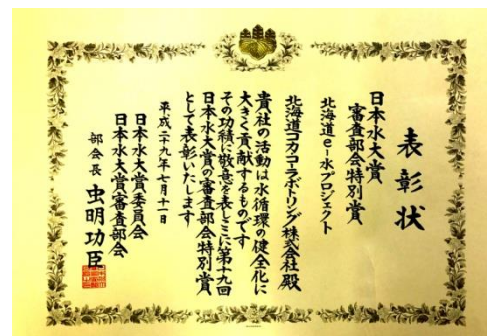 表彰状
日本水大賞
審査部会特別賞
北海道e-水プロジェクト
北海道コカ・コーラボトリング株式会社殿
貴社の活動は水循環の健全化に
大きく貢献するものです
その功績に敬意を表しここに第十九回
日本水大賞の審査部会特別賞
として表彰いたします
平成二十九年七月十一日
日本水大賞委員会
日本水大賞審査部会
部会長 虫明功臣